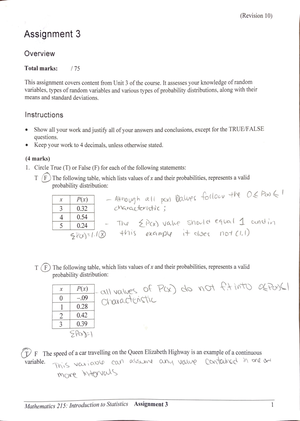 (Revision 10)
Assignment 3
Overview
Total marks: / 75
This assignment covers content from Unit 3 of the course. It assesses your knowledge of random
variables, types of random variables and various types of probability distributions, along with their
means and standard deviations.
Instructions
• Show all your work and justify all of your answers and conclusions, except for the TRUE/FALSE
questions.
• Keep your work to 4 decimals, unless otherwise stated.
(4 marks)
1. Circle True (T) or False (F) for each of the following statements:
T F The following table, which lists values of x and their probabilities, represents a valid
probability distribution:
x P(x)
3 0.32
4 0.54
5 0.24
ΣP(x)=1.1
- Although all P(x) values follow the 0≤P(x)≤1
characteristic;
- The ΣP(x) value should equal 1 and in
this example it does not (1.1)
T F The following table, which lists values of x and their probabilities, represents a valid
probability distribution:
x P(x)
0 -.09
1 0.28
2 0.42
3 0.39
ΣP(x)=1
all values of P(x) do not fit into 0≤P(x)≤1
characteristic
T F The speed of a car travelling on the Queen Elizabeth Highway is an example of a continuous
variable.
This variable can assume any value contained in one or
more intervals
Mathematics 215: Introduction to Statistics Assignment 3 1